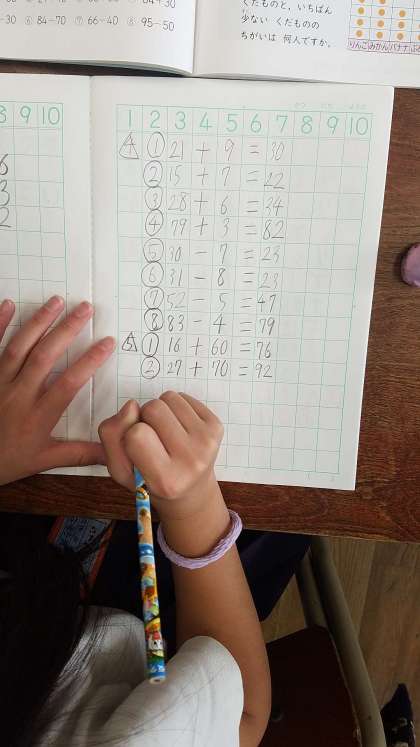 84+30
-30 ⑥ 84-70 ⑦ 66-40 ⑧ 95-50
くだものと、いちばん
少ない くだものの
ちがいは 何人ですか。
りんご みかん バナナ
8 9 10
1 2 3 4 5 6 7 8 9 10
6
3
2
4 ① 21 + 9 = 30
② 15 + 7 = 22
③ 28 + 6 = 34
④ 79 + 3 = 82
⑤ 30 - 7 = 23
⑥ 31 - 8 = 23
⑦ 52 - 5 = 47
⑧ 83 - 4 = 79
5 ① 16 + 60 = 76
② 27 + 70 = 92